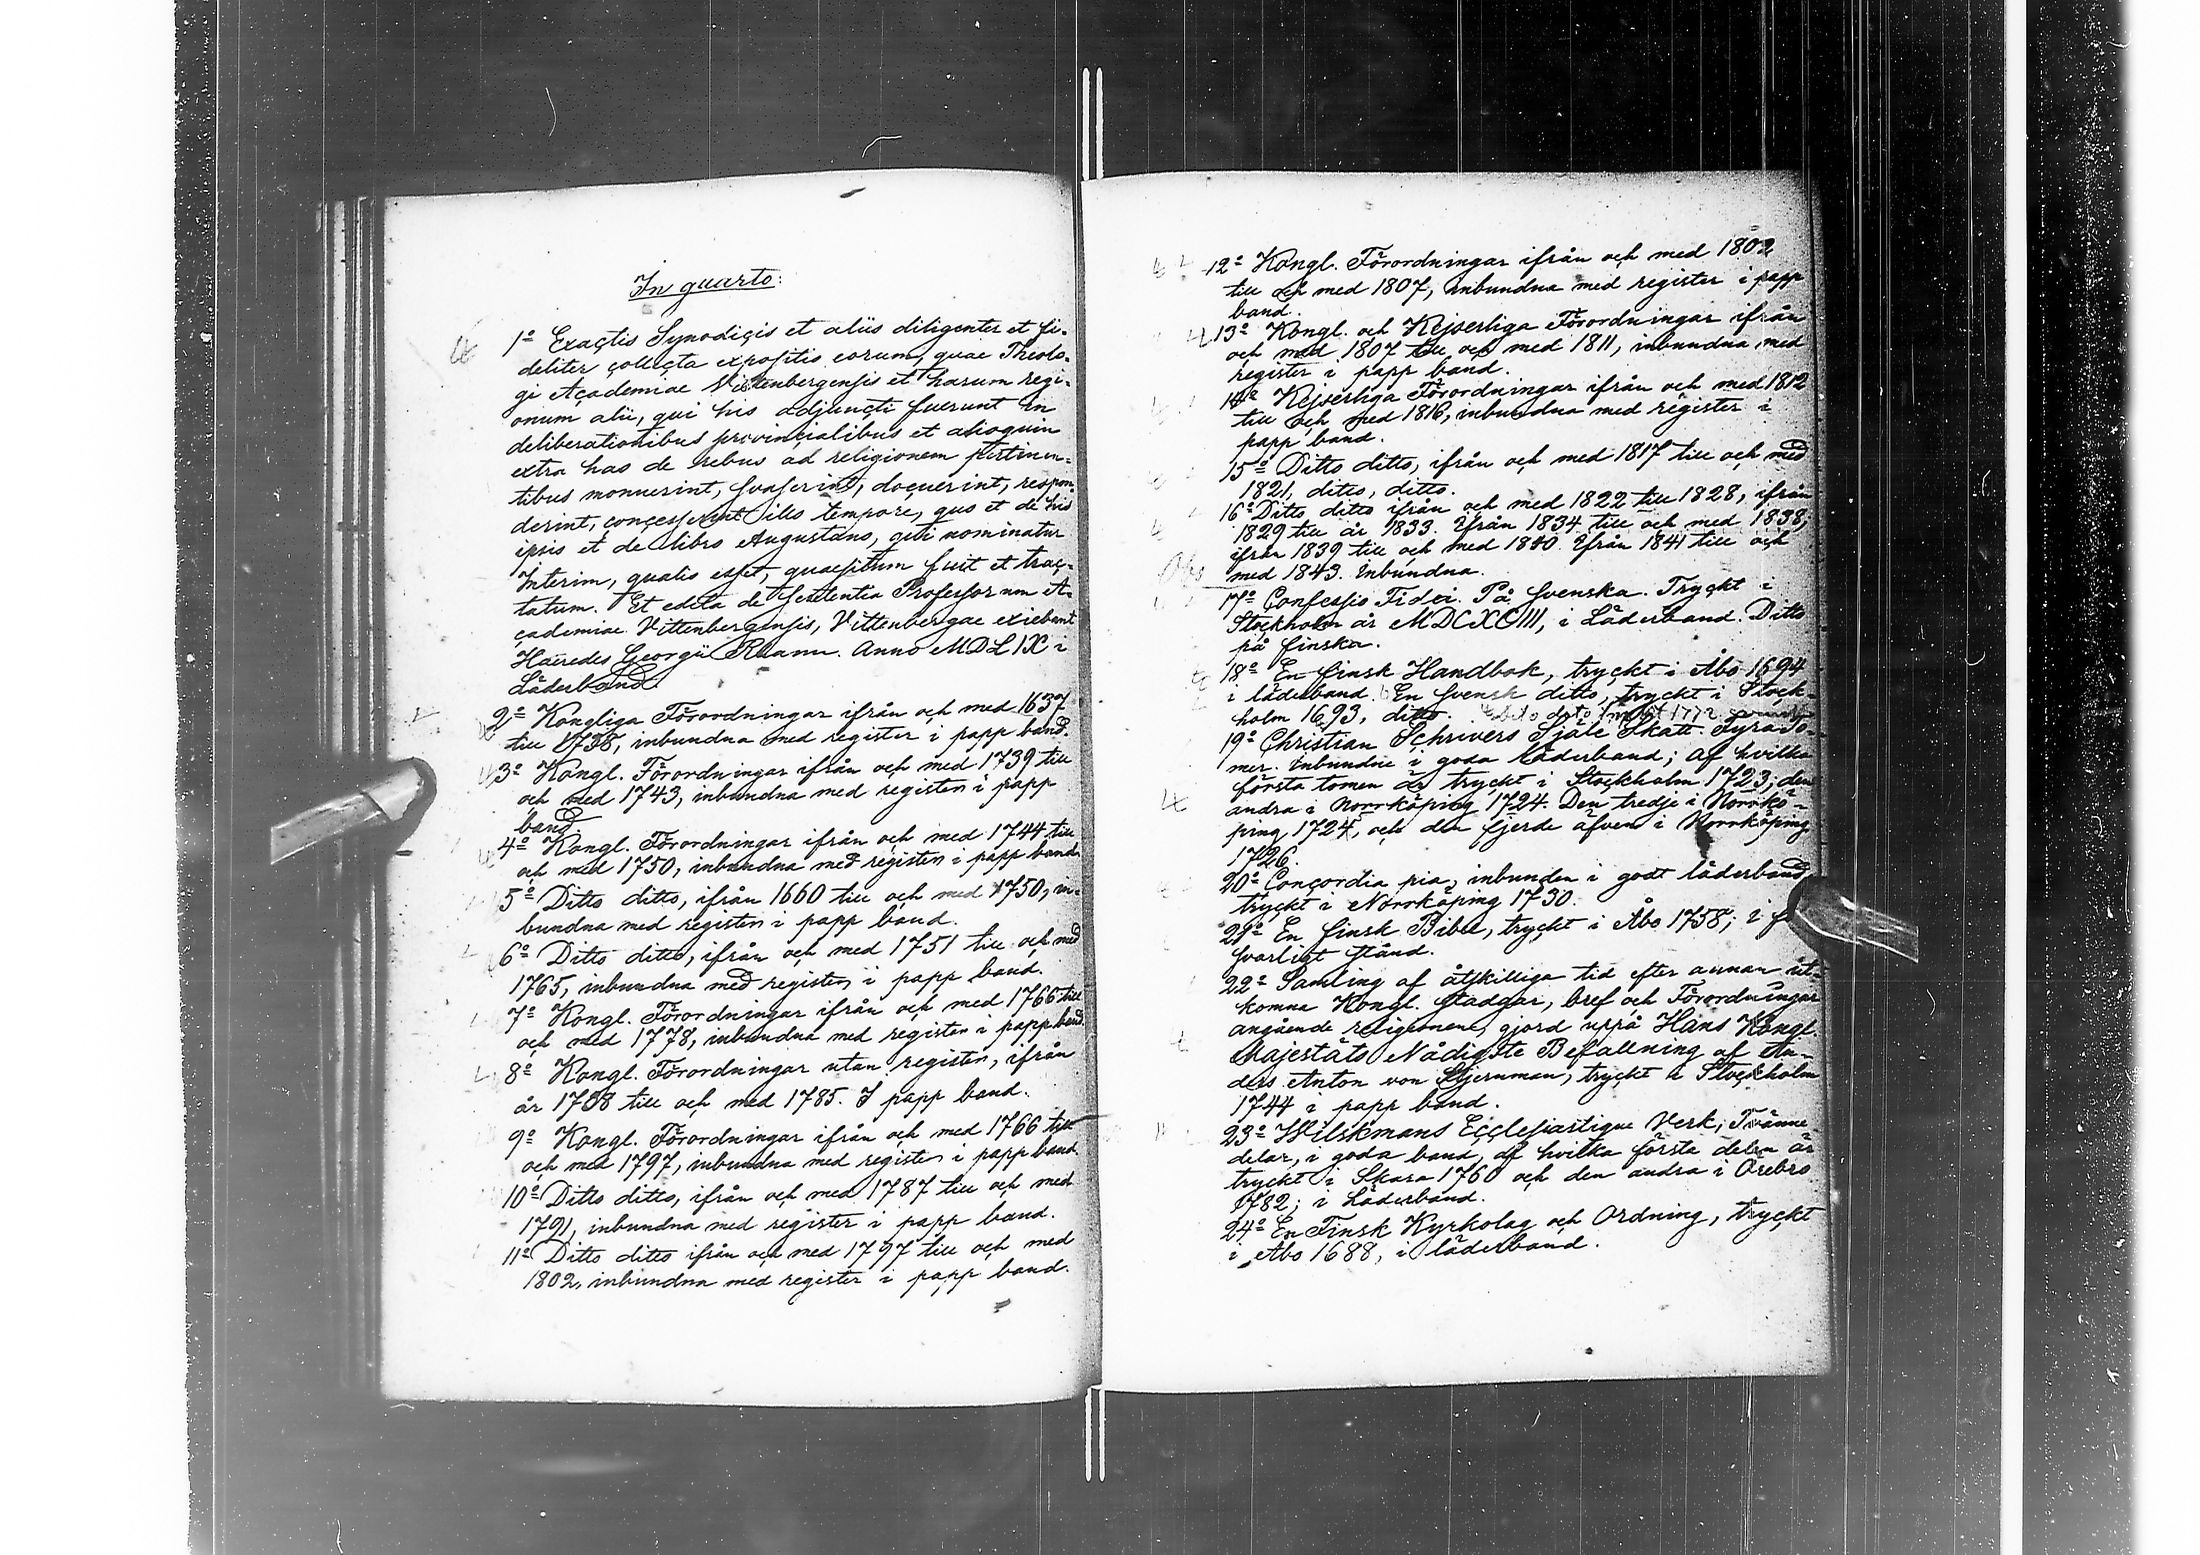 In quarto:
1º Exactis Synodicis et aliis diligenter et fi-
deliter collecta expositio eorum, quae Theolo-
gi Academiae Vittenbergensis et harum regi-
onum alii, qui his adjuncti fuerunt in
deliberationibus provincialibus et alioquin
extra has de rebus ad religionem pertinen-
tibus monuerint, svaserint, docuerint, respon
derint, concesserint illo tempore, quo et de his
ipsis et de libro Augustano, qui nominatur
Interim, qualis esset, quaesitum fuit et trac-
tatum. Et edita de sententia Professorum A-
cademiae Vittenbergensis, Vittenbergae exiebant
Haeredes Georgii Rhann. Anno MDLIX i
Läderband
2º Kongliga Förordningar ifrån och med 1637
till 1738, inbundna med register i papp band.
3º Kongl. Förordningar ifrån och med 1739 till
och med 1743, inbundna med registen i papp
band
4º Kongl. Förordningar ifrån och med 1744 till
och med 1750, inbundna med registen i papp band
5º Ditto ditto, ifrån 1660 till och med 1750, in-
bundna med registen i papp band.
6º Ditto ditto, ifrån och med 1751 till och med
1765, inbundna med registen i papp band.
7º Kongl. Förordningar ifrån och med 1766 till
och med 1778, inbundna med registen i papp band.
8º Kongl. Förordningar utan registen, ifrån
år till och med 1785. I papp band.
9º Kongl. Förordningar ifrån och med 1766 till
och med 1797, inbundna med registen i papp band.
10º Ditto ditto, ifrån och med 1787 till och med
1791, inbundna med register i papp band.
11º Ditto ditto ifrån och med 1797 till och med
1802, inbundna med register i papp band.
12º Kongl. Förordningar ifrån och med 1802
till och med 1807, inbundna med register i papp
band.
13º Kongl. och Kejserliga Förordningar ifrån
och med 1807 till och med 1811, inbundna med
register i papp band.
14º Kejserliga Förordningar ifrån och med 1812
till och med 1816, inbundna med register i
papp band.
15º Ditto ditto, ifrån och med 1817 till och med
1821, ditto, ditto.
16º Ditto ditto ifrån och med 1822 till 1828, ifrån
1829 till år 1833. Ifrån 1834 till och med 1838,
ifrån 1839 till och med 1840. Ifrån 1841 till och
med 1843. Inbundna.
17º Confessio Fidei. På Svenska. Tryckt i
Stockholm år MDCXCIII, i Läderband. Ditto
på finska.
18º En finsk Handbok, tryckt i Åbo 1694
i läderband. En Svensk ditto, tryckt i Stock-
holm 1693, ditto.
19º Christian Schrivers Själe Skatt. Fyra To-
mer. Inbundne i goda läderband; af hvilka
första tomen är tryckt i Stockholm 1723, den
andra i Norrköping 1724. Den tredje i Norrkö-
ping 1724, och den fjerde äfven i Norrköping
1726.
20º Concordia pia, inbunden i godt läderband,
tryckt i Norrköping 1730.
21º En finsk Bibel, tryckt i Åbo 1758; i
svarligt stånd.
22º Samling af åtskilliga tid efter annan ut-
komna Kongl. Stadgar, bref och Förordningar
angående religionene, gjord uppå Hans Kongl.
Majestäts Nådigste Befallning af An-
ders Anton von Stjernman, tryckt i Stockholm
1744 i papp band.
23º Wilskmans Ecclesiastique Verk; Tvänne
delar, i goda band, af hvilka första delen är
tryckt i Skara 1760 och den andra i Örebro
1782; i Läderband.
24º En Finsk Kyrkolag och Ordning, tryckt
i Åbo 1688, i läderband.